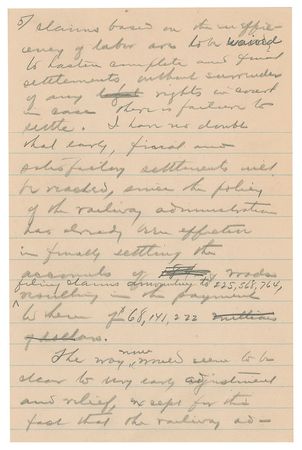 5/ claims based on the ineffici-
ency of labor are to be waived
to hasten complete and final
settlements without surrender
of any legal rights in court
in case there is failure to
settle. I have no doubt
that early, final and
satisfactory settlements will
be reached, since the policy
of the railway administration
has already been effective
in finally settling the
accounts of roads
filing claims amounting to 225,568,764,
resulting in the payment
to them of $68,141,222 millions
of dollars.
The way now would seem to be
clear to very early adjustment
and relief, except for the
fact that the railway ad-